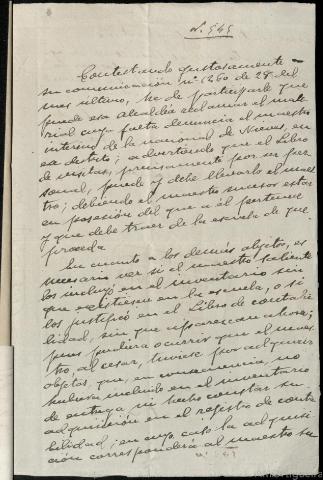 n. 545
Contestando gustosamente
su comunicación nº 1260 de 28 del
mes último, he de participarle que
puede esa Alcaldía reclamar el mate-
rial cuya falta denuncia el maestro
interino de la nacional de Nieves, en
ese distrito; advirtiendo que el Libro
de visitas, precisamente por ser per-
sonal, puede y debe llevarlo el maes-
tro; debiendo el maestro sucesor estar
en posesión del que a él pertenece
y que debe traer de la escuela de que
proceda.
En cuanto a los demás objetos, es
necesario ver si el maestro saliente
los incluyó en el inventario sin
que existiesen en la escuela, o si
los justificó en el Libro de contabi-
lidad, sin que aparezcan ahora;
pues pudiera ocurrir que el maes-
tro, al cesar, tuviese por adquirir
objetos, que, en consecuencia, no
hubiera incluido en el inventario
de entrega, ni hecho constar su
adquisición en el registro de conta-
bilidad; en cuyo caso la adquisi-
ción corresponderá al maestro su